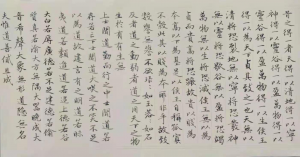 昔之得一者天得一以清地得一以寧
神得一以靈谷得一以盈萬物得一以生侯王
得一以為天下貞其致之也天無以
清將恐裂地無以寧將恐發神
無以靈將恐歇谷無以盈將恐竭
萬物無以生將恐滅侯王無以
貞而貴高將恐蹶故貴以賤為
本高以下為基是以侯王自稱孤寡
不穀此其以賤為本耶非乎故致
數譽無譽不欲琭琭如玉珞珞如石
反者道之動弱者道之用天下之物
生於有有生於無
上士聞道勤而行之中士聞道若
存若亡下士聞道大笑之不笑不足
以為道故建言有之明道若昧
夷道若纇進道若退上德若谷
大白若辱廣德若不足建德若偷
質真若渝大方無隅大器晚成大
音希聲大象無形道隱無名
夫唯道善貸且成